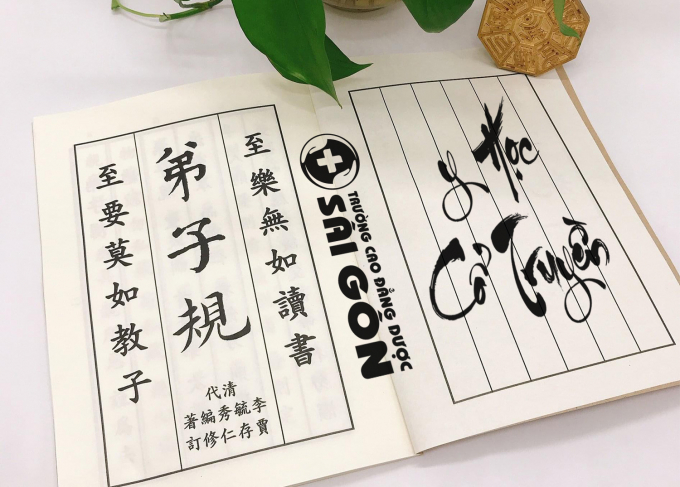 至樂無如讀書
弟子規
清代
李毓秀編著
賈存仁修訂
至要莫如教子
TRƯỜNG CAO ĐẲNG DƯỢC
SÀI GÒN
y Học
Cổ Truyền